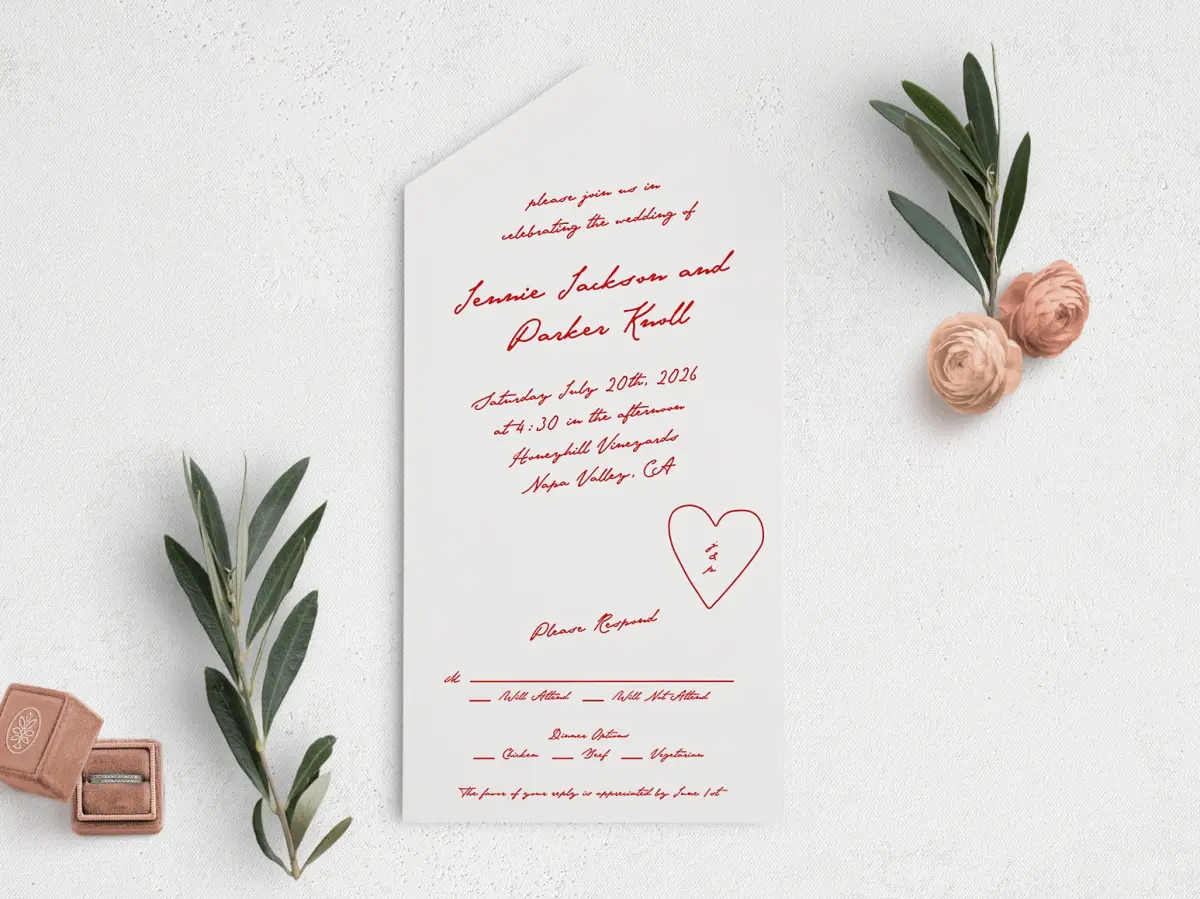 please join us in
celebrating the wedding of
Jennie Jackson and
Parker Knoll
Saturday July 20th, 2026
at 4:30 in the afternoon
Honeyhill Vineyards
Napa Valley, CA
j
&
p
Please Respond
M
Will Attend Will Not Attend
Dinner Options
Chicken Beef Vegetarian
The favor of your reply is appreciated by June 1st